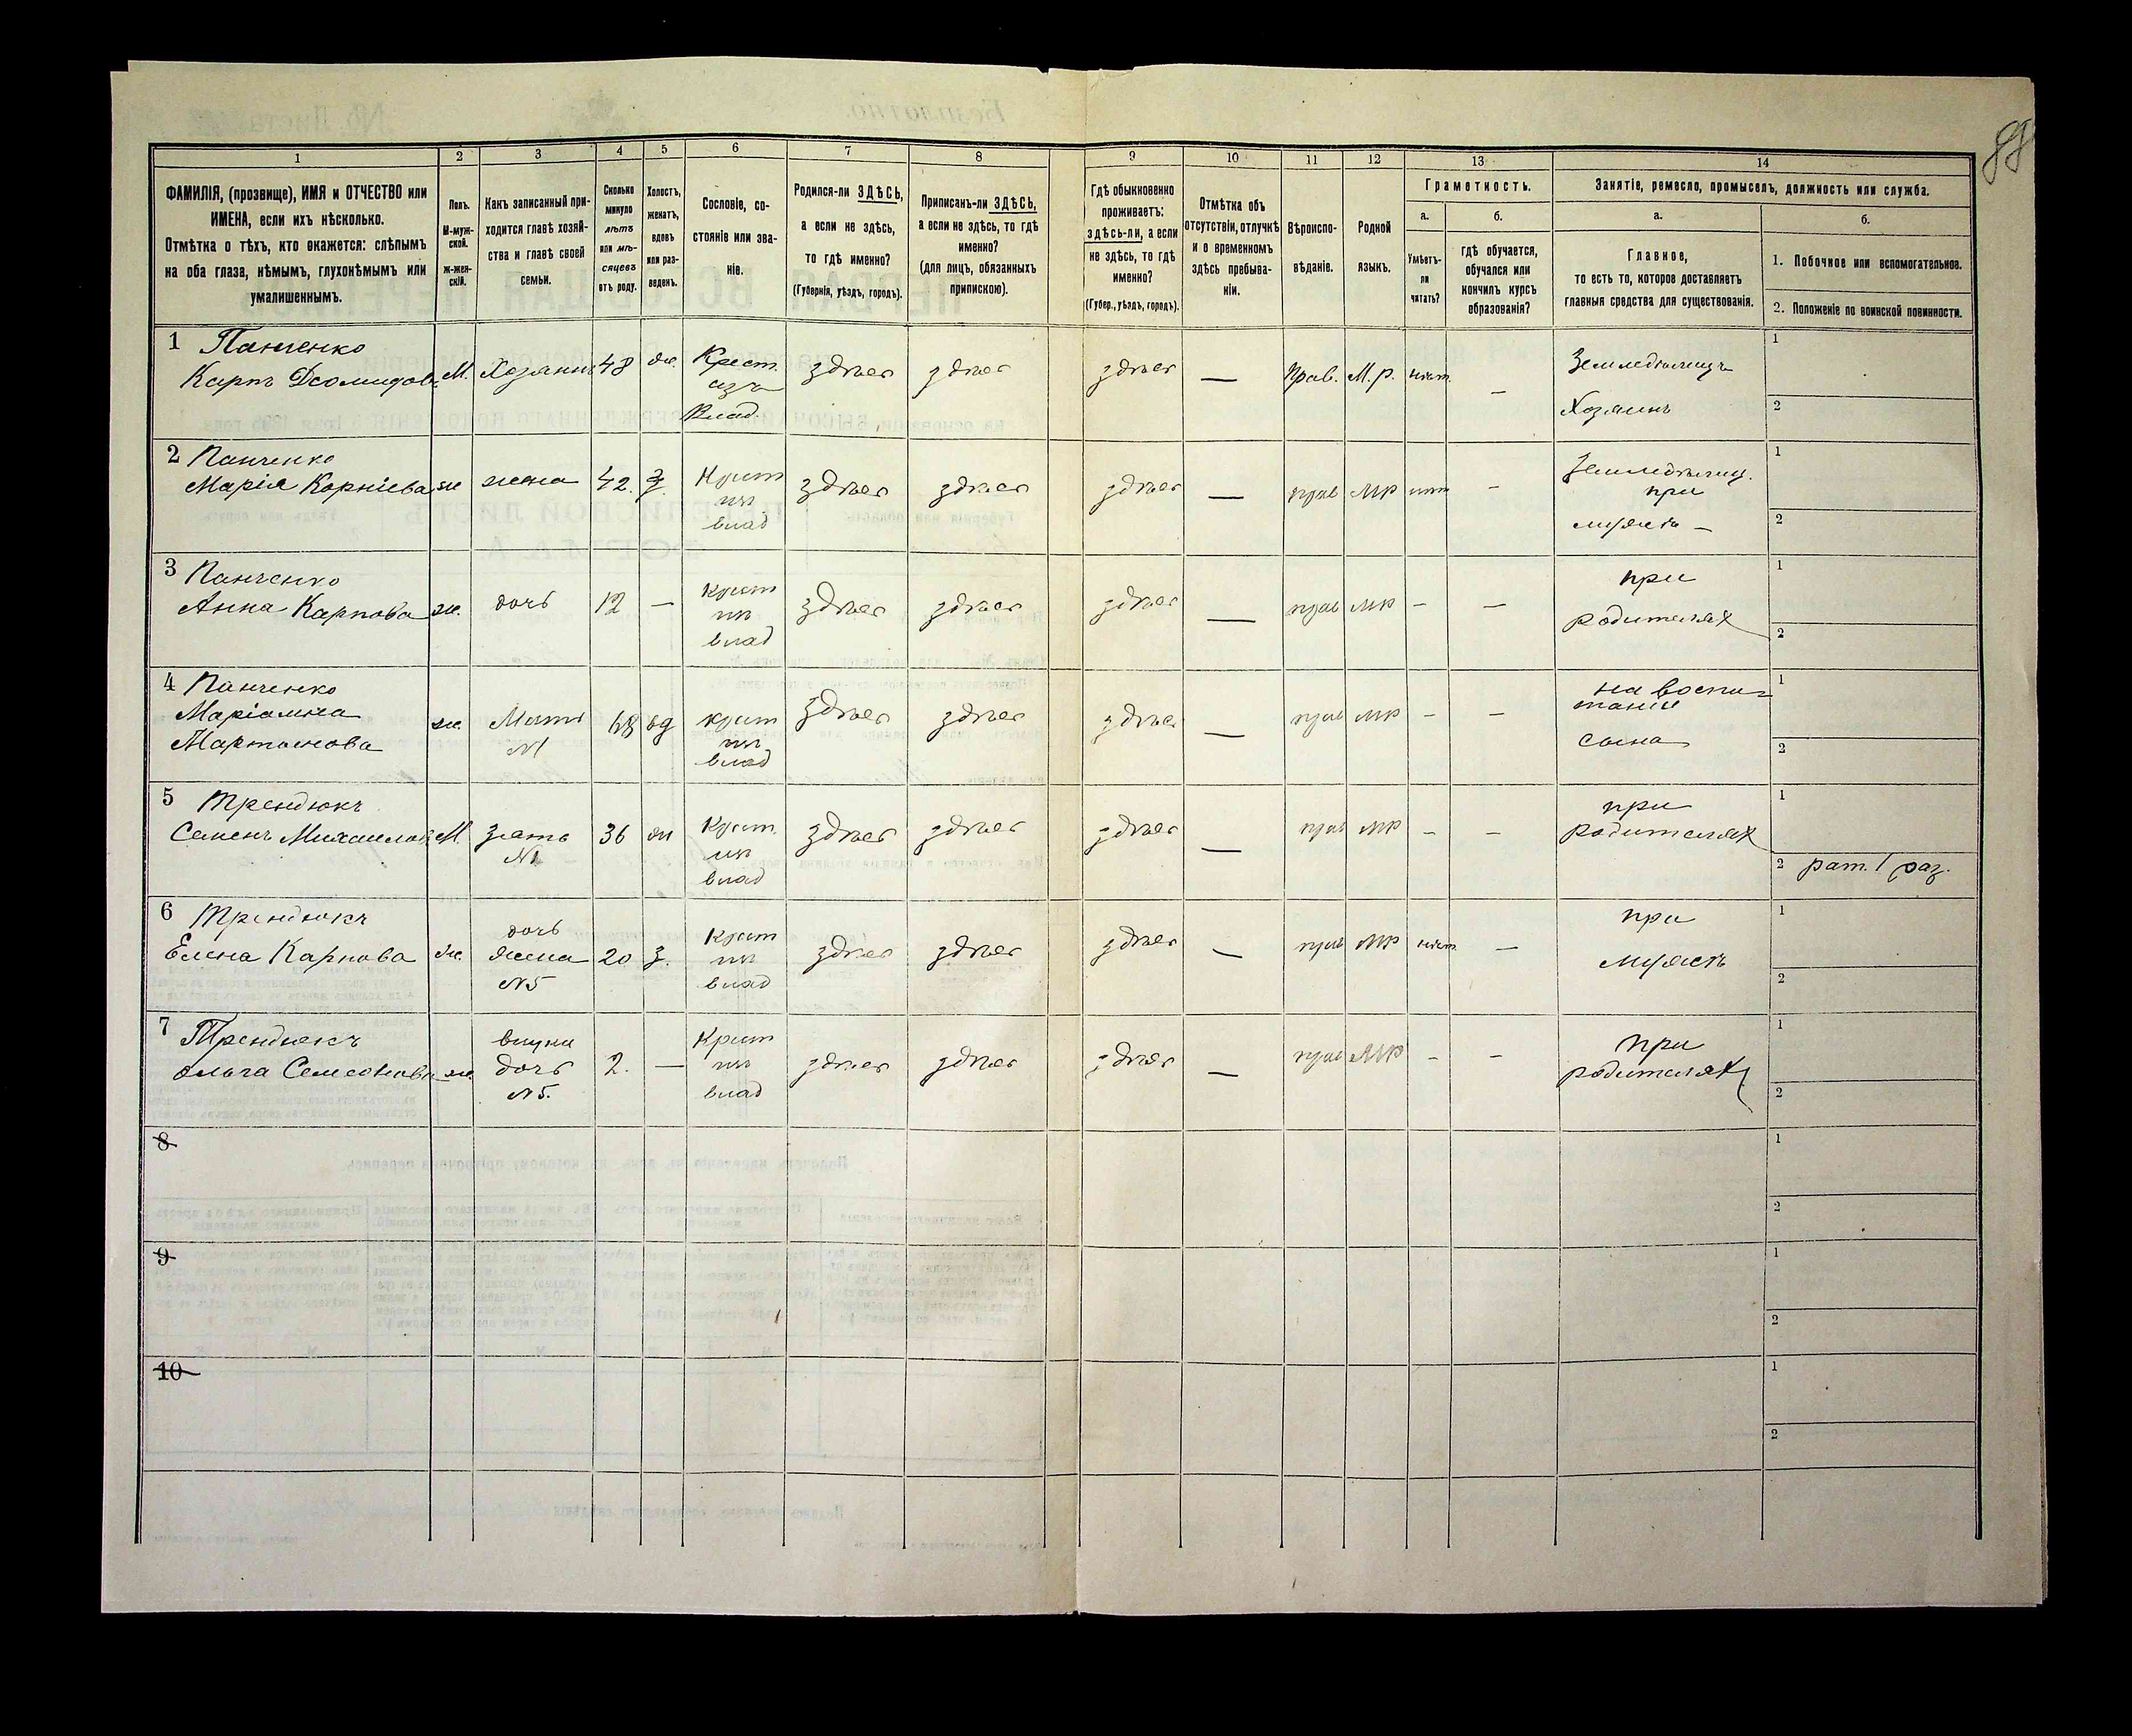 88
1 2 3 4 5 6 7 8 9 10 11 12 13 14
ФАМИЛІЯ, (прозвище), ИМЯ и ОТЧЕСТВО или
ИМЕНА, если ихъ нѣсколько.
Отмѣтка о тѣхъ, кто окажется: слѣпымъ
на оба глаза, нѣмымъ, глухонѣмымъ или
умалишеннымъ.
Полъ.
М-муж-
ской.
ж-жен-
скій.
Какъ записанный при-
ходится главѣ хозяй-
ства и главѣ своей
семьи.
Сколько
минуло
лѣтъ
или мѣ-
сяцевъ
отъ роду.
Холостъ,
женатъ,
вдовъ
или раз-
веденъ.
Сословіе, со-
стояніе или зва-
ніе.
Родился-ли ЗДѢСЬ,
а если не здѣсь,
то гдѣ именно?
(Губернія, уѣздъ, городъ).
Приписанъ-ли ЗДѢСЬ,
а если не здѣсь, то гдѣ
именно?
(для лицъ, обязанныхъ
припискою).
Гдѣ обыкновенно
проживаетъ:
здѣсь-ли, а если
не здѣсь, то гдѣ
именно?
(Губер., уѣздъ, городъ).
Отмѣтка объ
отсутствіи, отлучкѣ
и о временномъ
здѣсь пребыва-
ніи.
Вѣроиспо-
вѣданіе.
Родной
языкъ.
Грамотность.
а.
Умѣетъ-
ли
читать?
б.
гдѣ обучается,
обучался или
кончилъ курсъ
образованія?
Занятіе, ремесло, промыселъ, должность или служба.
а.
Главное,
то есть то, которое доставляетъ
главныя средства для существованія.
б.
1. Побочное или вспомогательное.
2. Положеніе по воинской повинности.
1 Панченко
Карпъ Деомидовъ М. Хозяинъ 48 ж. Крест. изъ Влад. здѣсь здѣсь здѣсь — Прав. М.р. нѣт. — Земледѣлецъ Хозяинъ 1 2
2 Панченко
Марія Корніева ж жена 42. з. Крест из влад здѣсь здѣсь здѣсь — прав мр нѣт — Земледѣлец. при мужѣ — 1 2
3 Панченко
Анна Карпова ж. дочь 12 — крест из влад здѣсь здѣсь здѣсь — прав мр — — при родителях 1 2
4 Панченко
Маріамна
Мартынова ж. Мать №1 68 вд крест из влад здѣсь здѣсь здѣсь — прав мр — — на воспи-
танiи
сына 1 2
5 Трендюкъ
Семенъ Михаилов М. зять №1 36 ж Крест. из влад здѣсь здѣсь здѣсь — прав мр — — при родителях 1 2 рат. 1 раз.
6 Трендюкъ
Елена Карпова ж. дочь жена №5 20 з. Крест из влад здѣсь здѣсь здѣсь — прав мр нѣт — при мужѣ 1 2
7 Трендюкъ
Ольга Семенова ж. внука дочь №5. 2. — Крест из влад здѣсь здѣсь здѣсь — прав мр — — при родителях 1 2
8 1 2
9 1 2
10 1 2